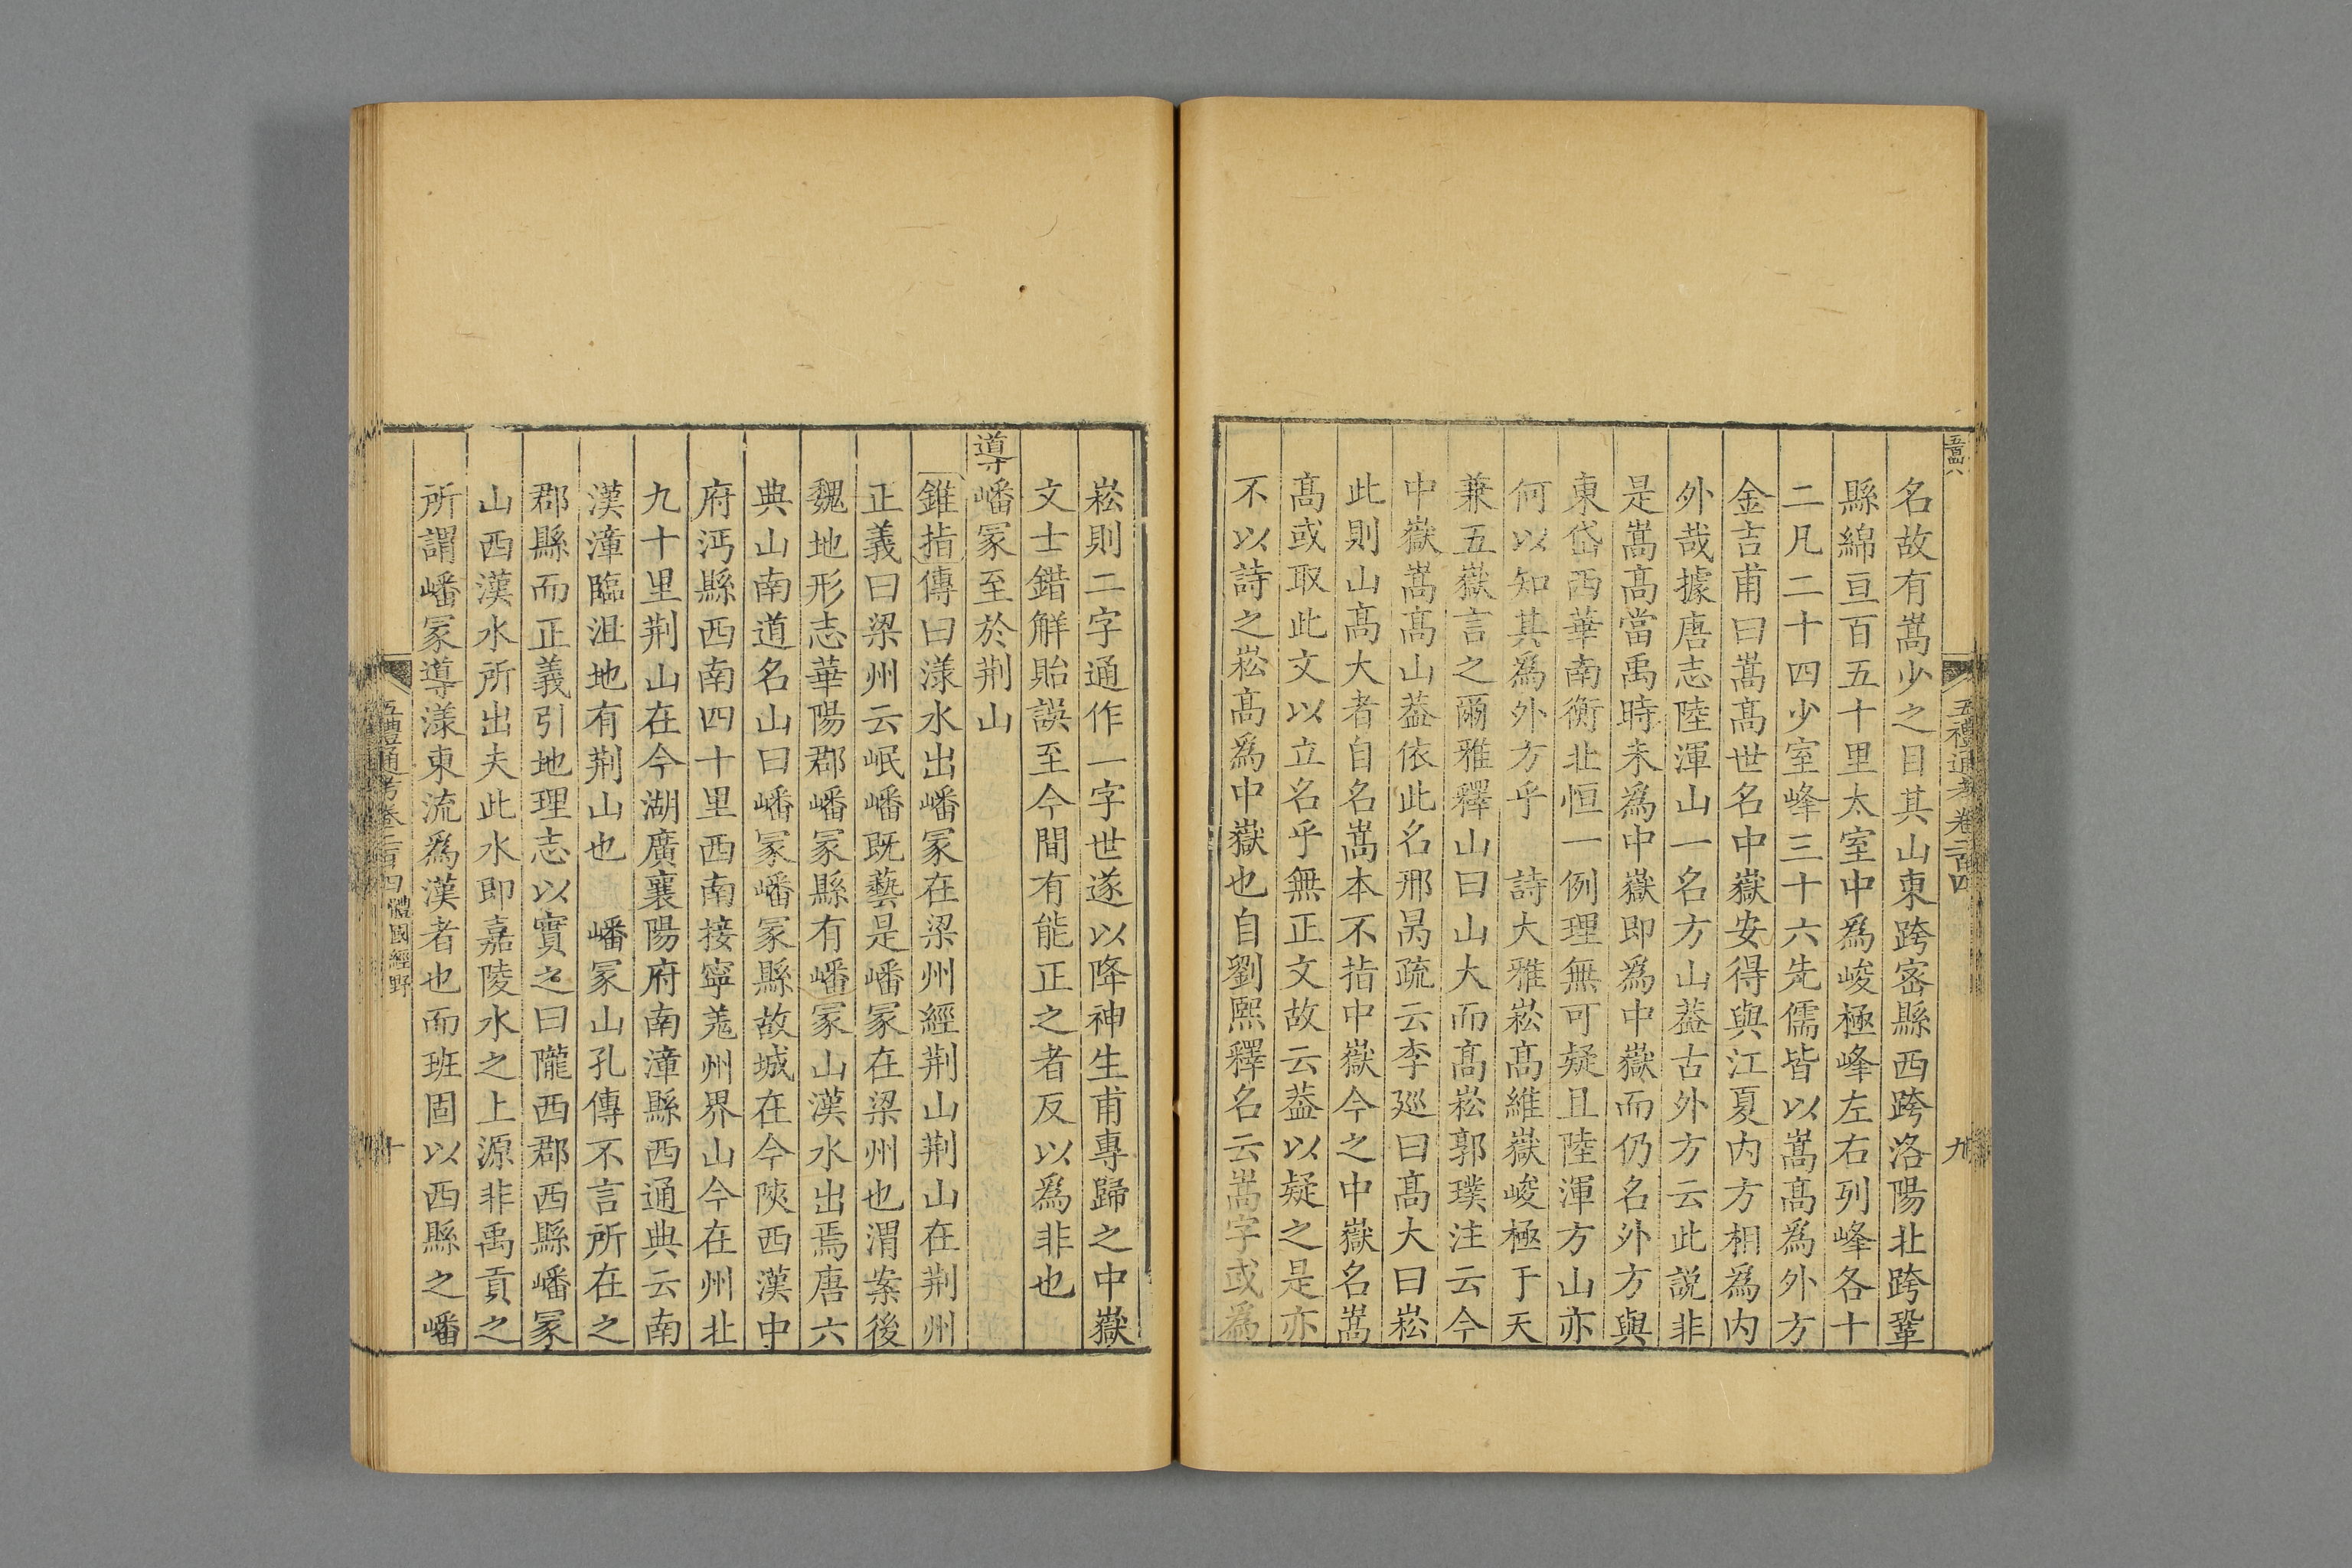 五百四八
五禮通考卷二百四
九
名故有嵩少之目其山東跨宻縣西跨洛陽北跨鞏
縣綿亘百五十里太室中爲峻極峰左右列峰各十
二凡二十四少室峰三十六先儒皆以嵩髙爲外方
金吉甫曰嵩髙世名中嶽安得與江夏内方相爲内
外哉據唐志陸渾山一名方山葢古外方云此説非
是嵩髙當禹時未爲中嶽即爲中嶽而仍名外方與
東岱西華南衡北恒一例理無可疑且陸渾方山亦
何以知其爲外方乎 詩大雅崧髙維嶽峻極于天
兼五嶽言之爾雅釋山曰山大而髙崧郭璞注云今
中嶽嵩髙山葢依此名邢昺疏云李廵曰髙大曰崧
此則山髙大者自名嵩本不指中嶽今之中嶽名嵩
髙或取此文以立名乎無正文故云葢以疑之是亦
不以詩之崧髙爲中嶽也自劉熙釋名云嵩字或爲
崧則二字通作一字世遂以降神生甫專歸之中嶽
文士錯解貽誤至今間有能正之者反以爲非也
導嶓冢至於荆山
錐指傳曰漾水出嶓冢在梁州經荆山荆山在荆州
正義曰梁州云岷嶓既藝是嶓冢在梁州也渭案後
魏地形志華陽郡嶓冢縣有嶓冢山漢水出焉唐六
典山南道名山曰嶓冢嶓冢縣故城在今陝西漢中
府沔縣西南四十里西南接寧羌州界山今在州北
九十里荆山在今湖廣襄陽府南漳縣西通典云南
漢漳臨沮地有荆山也 嶓冢山孔傳不言所在之
郡縣而正義引地理志以實之曰隴西郡西縣嶓冢
山西漢水所出夫此水即嘉陵水之上源非禹貢之
所謂嶓冢導漾東流爲漢者也而班固以西縣之嶓
五禮通考卷二百四 體國經野
十